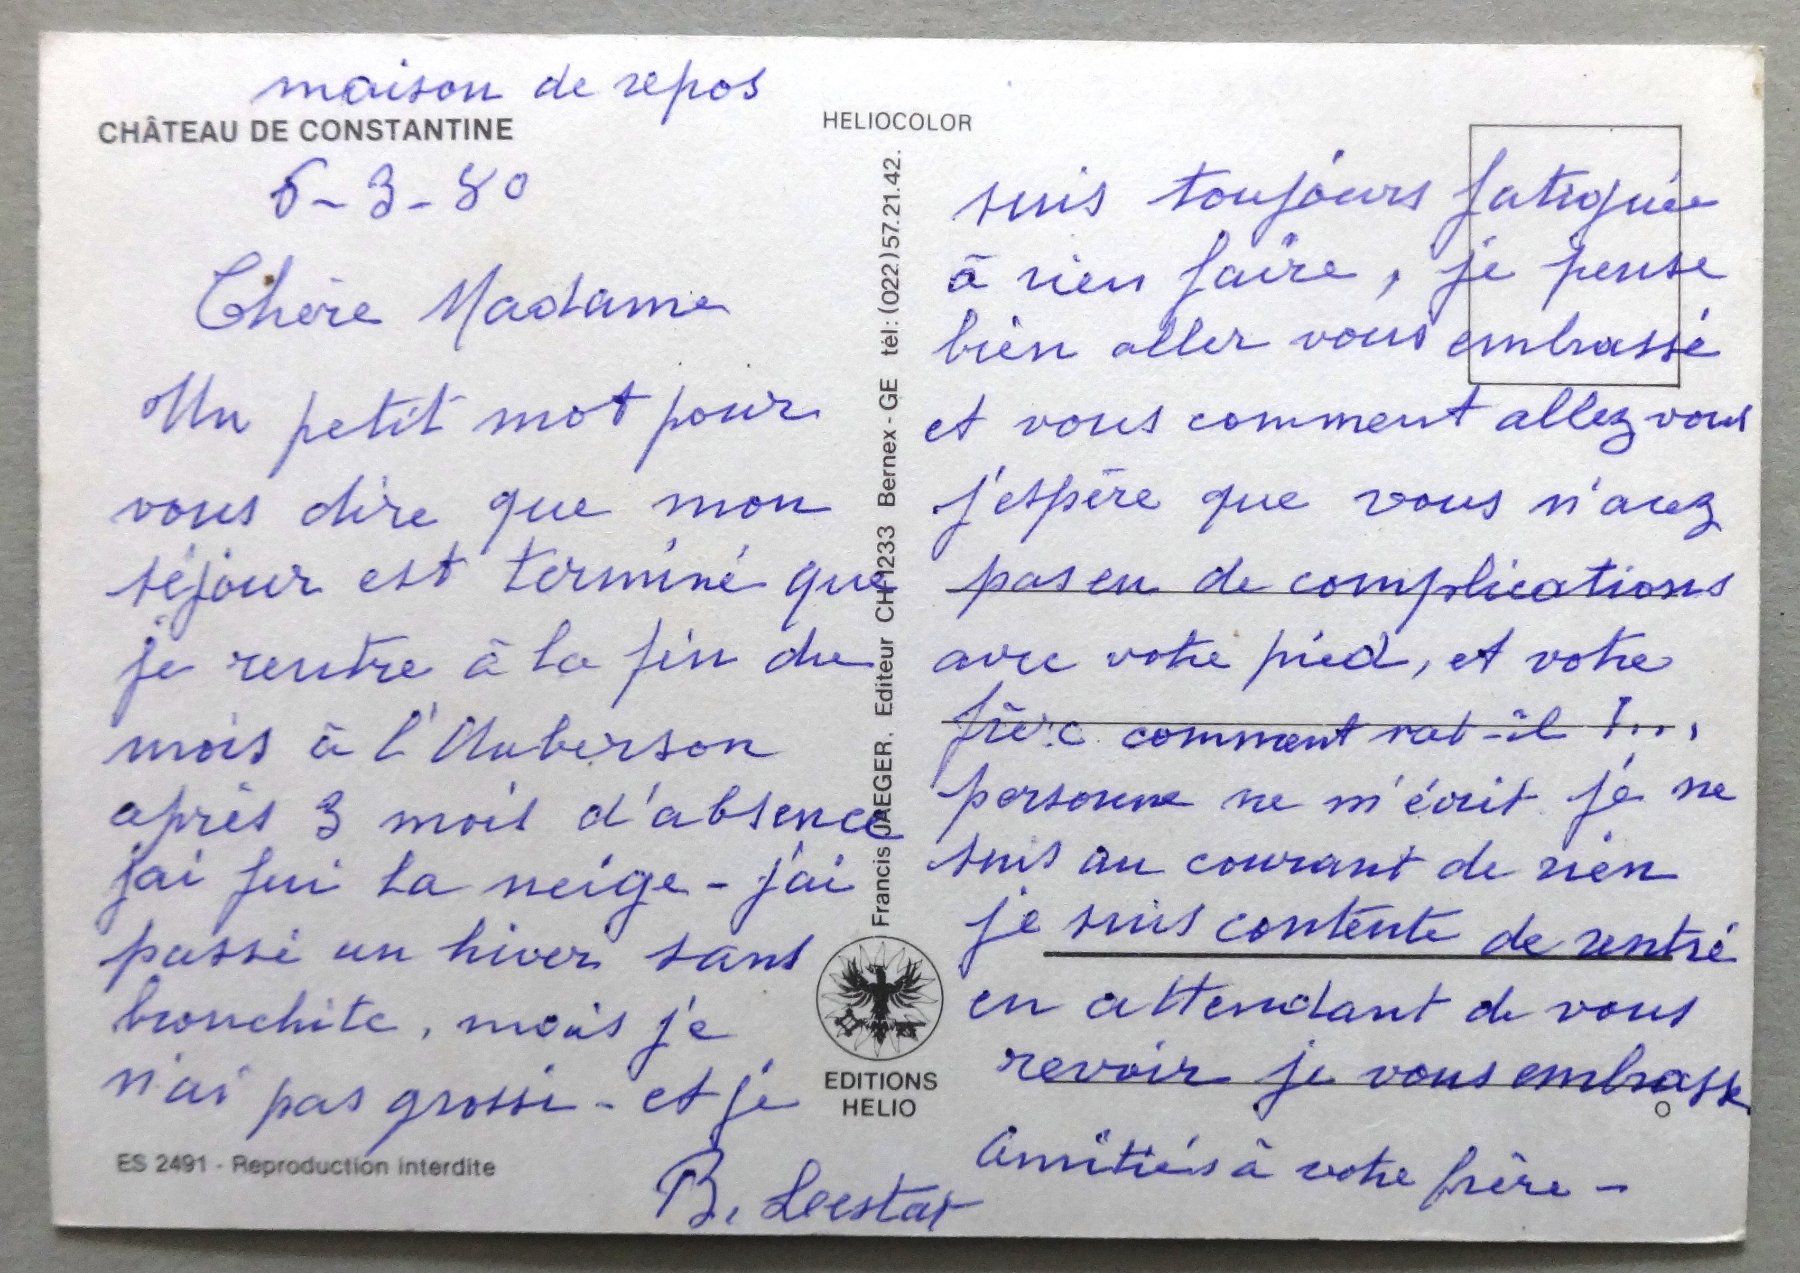 maison de repos
CHÂTEAU DE CONSTANTINE
5-3-80
Chère Madame
Un petit mot pour
vous dire que mon
séjour est terminé que
je rentre à la fin du
mois à l'Auberson
après 3 mois d'absence
j'ai fui la neige - j'ai
passé un hiver sans
bronchite, mais je
n'ai pas grossi - et je
ES 2491 - Reproduction interdite
HELIOCOLOR
Francis JAEGER. Editeur CH-1233 Bernex - GE tél: (022) 57.21.42.
EDITIONS
HELIO
suis toujours fatiguée
à rien faire, je pense
bien aller vous embrassé
et vous comment allez vous
j'espère que vous n'avez
pas eu de complications
avec votre pied, et votre
frère comment vat-il !...
personne ne m'écrit je ne
suis au courant de rien
je suis contente de rentré
en attendant de vous
revoir je vous embrasse
amitiés à votre frère -
B.